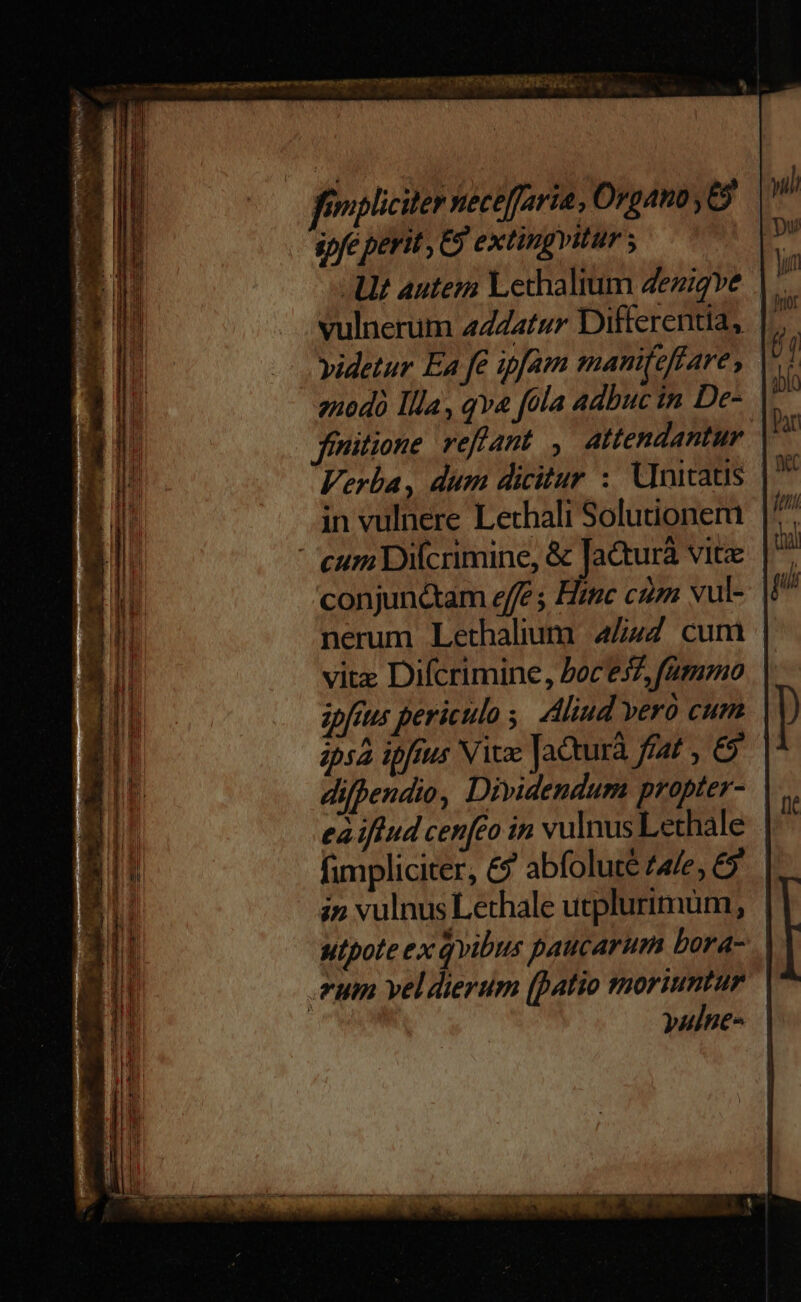 ſimpliciter neceſſariæ, Organo, &
ipſe perit, & extingvitur;
Ut autem Lethalium deniqve
vulnerum addatur Differentia,
videtur Ea ſe ipſam manifeſtare,
modò Illa, qvæ ſola adhuc in De-
finitione reſtant, attendantur
Verba, dum dicitur: Unitatis
in vulnere Lethali Solutionem
cum Diſcrimine, & Jacturâ vitæ
conjunctam eſſe; Hinc cùm vul-
nerum Lethalium aliud cum
vitæ Diſcrimine, hoc eſt, ſummo
ipſius periculo; Aliud verò cum
ipsâ ipſius Vitæ Jacturâ fiat, &
diſpendio, Dividendum propter-
eà iſtud cenſeo in vulnus Lethale
ſimpliciter, & abſolutè tale, &
in vulnus Lethale utplurimùm,
utpote ex qvibus paucarum hora-
rum vel dierum ſpatio moriuntur
vulne-